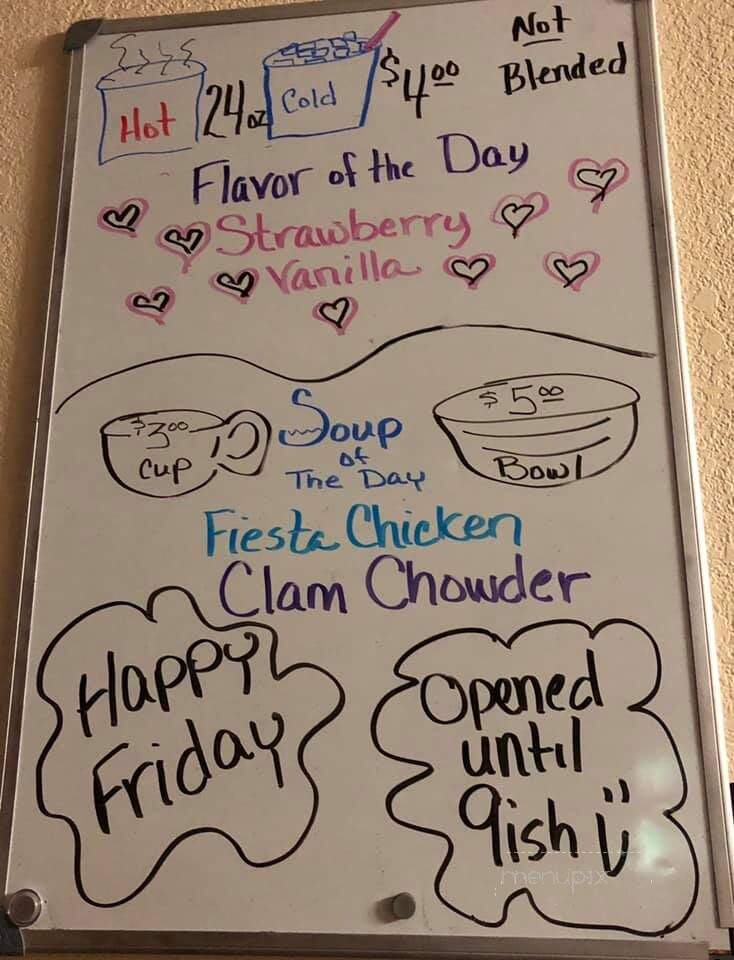 Hot 24oz Cold $4.00 Not
Blended
Flavor of the Day
Strawberry
Vanilla
$3.00 Cup
Soup
of
The Day
$5.00 Bowl
Fiesta Chicken
Clam Chowder
Happy
Friday
Opened
until
9ish
menupix